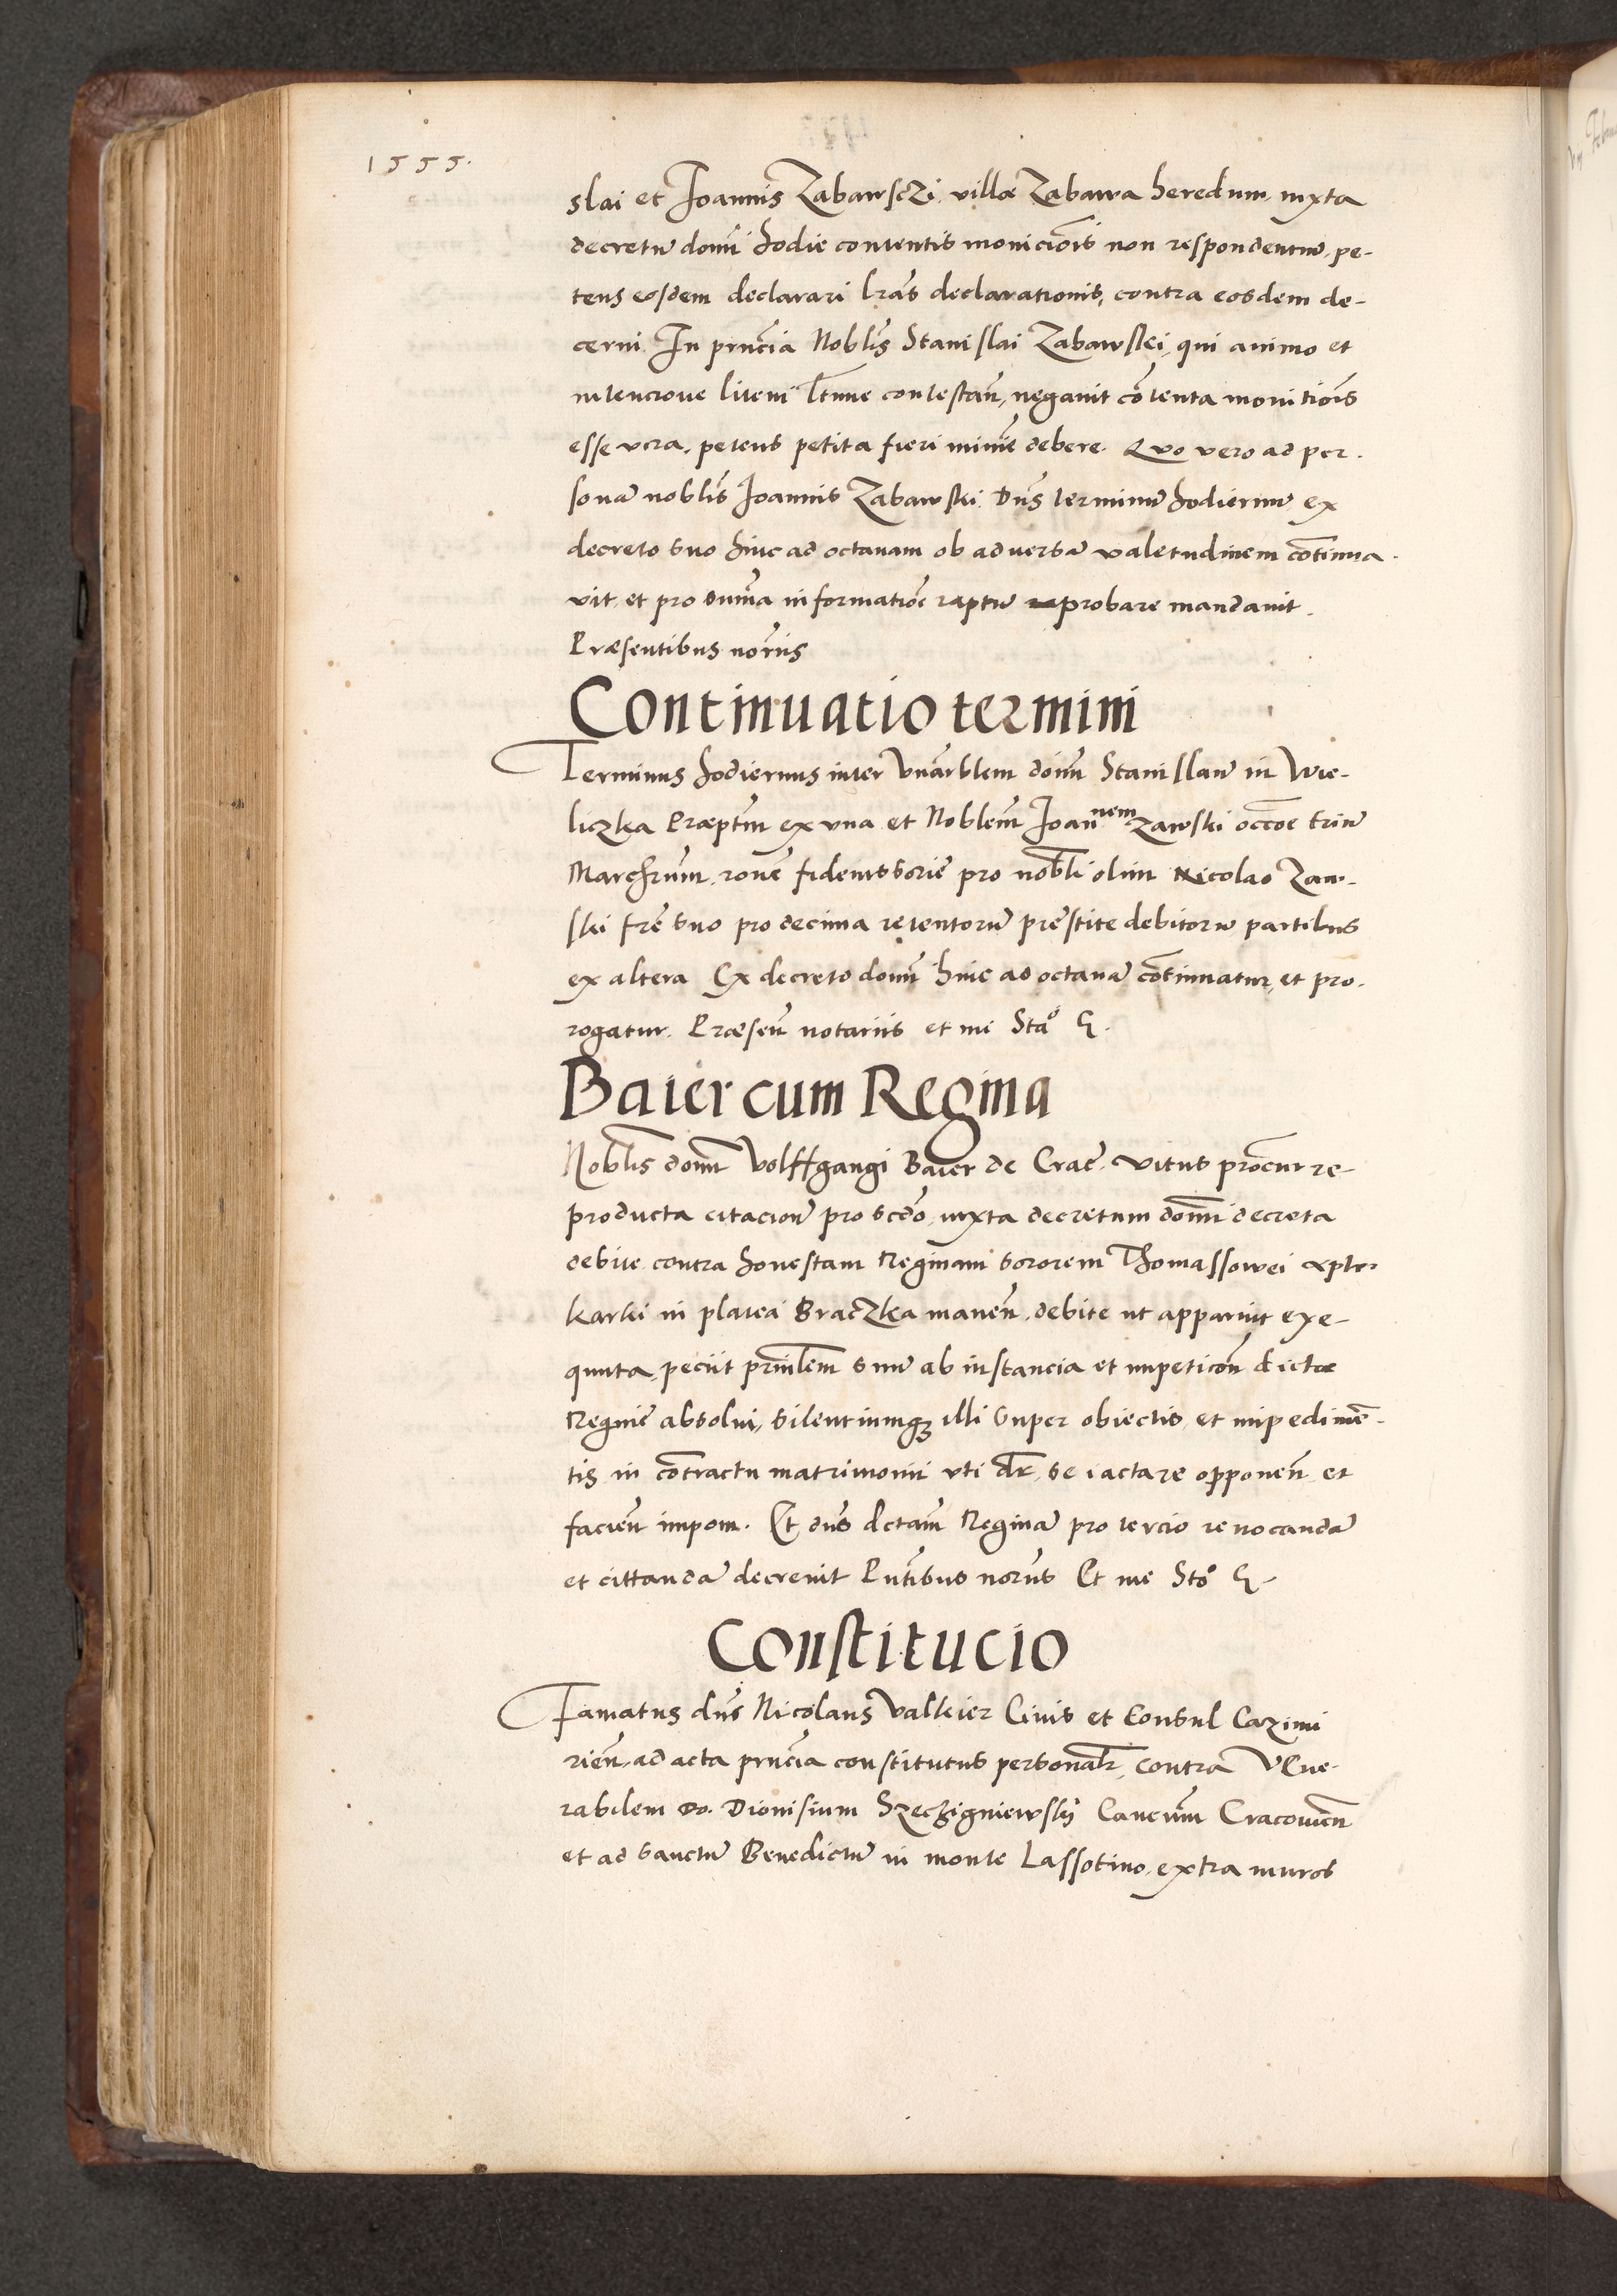 1555.
slai et Joannis Zabawsczi villæ Zabawa heredum iuxta
decretũ domĩ hodie contentis monicioĩs non respondentiũ, pe-
tens eosdem declarari lr̃as declarationis, contra eosdem de-
cerni In pr̃ncia Nobl̃is Stanislai Zabawskei, qui animo et
intencione litem l̃time contestañ, negauit cõtenta monitioĩs
esse vera, petens petita fieri minĩe debere. Quo vero ad per-
sonã nobl̃is Joannis Zabawski. Dñs terminũ hodiernũ ex
decreto suo hinc ad octauam ob aduersã valetudinem cõtinua-
vit et pro sum̃a informatiõe raptũ probare mandauit.
Præsentibus nor̃iis
Continuatio termini
Terminus hodiernus inter Vnãrblem doim̃ Stanislaũ in Wie-
liczka Præptm̃ ex vna et Noblem̃ Joannem Zawski occõe triũ
Marchr̃um, rone fideiussoriẽ pro nobl̃i olim Nicolao Zaw-
ski fr̃e suo pro decima retentorũ prẽstite debitorũ partibus
ex altera Ex decreto doim̃ hinc ad octauã cõtinuatur, et pro-
rogatur. Præseñ notariis et me Stãº G.
Baier cum Regina
Nobl̃is doim̃ Volffgangi Baier de Crac̃. Vitus procur̃ re-
producta citacionẽ pro scdõ, iuxta decretum dom̃i decreta
debite contra honestam Reginam sororem Thomassowei apte-
karki in platea Braczka maneñ, debite ut apparuit exe-
quuta, peciit prinlem̃ suũ ab instancia et impeticoñ dictæ
Reginẽ absolui, silentiumqȝ illi super obiectis, et impedimẽ-
tis in cõtractu matrimonii vti dr̃, se iactare opponeñ et
facieñ impoñi. Et dñs dctam̃ Reginã pro tercio reuocandã
et cittandã decreuit Pñtibus nor̃iis Et me Stõº G.
Constitucio
Famatus dñs Nicolaus Valkier Ciuis et Consul Cazimi
rieñ, ad acta pr̃ncia constitutus personalr̃, contra VEne-
rabilem Do. Dionisium Szecȝigniewskÿ Canc̃um Cracouieñ
et ad sanctũ Benedictũ in monte Lassotino, extra muros